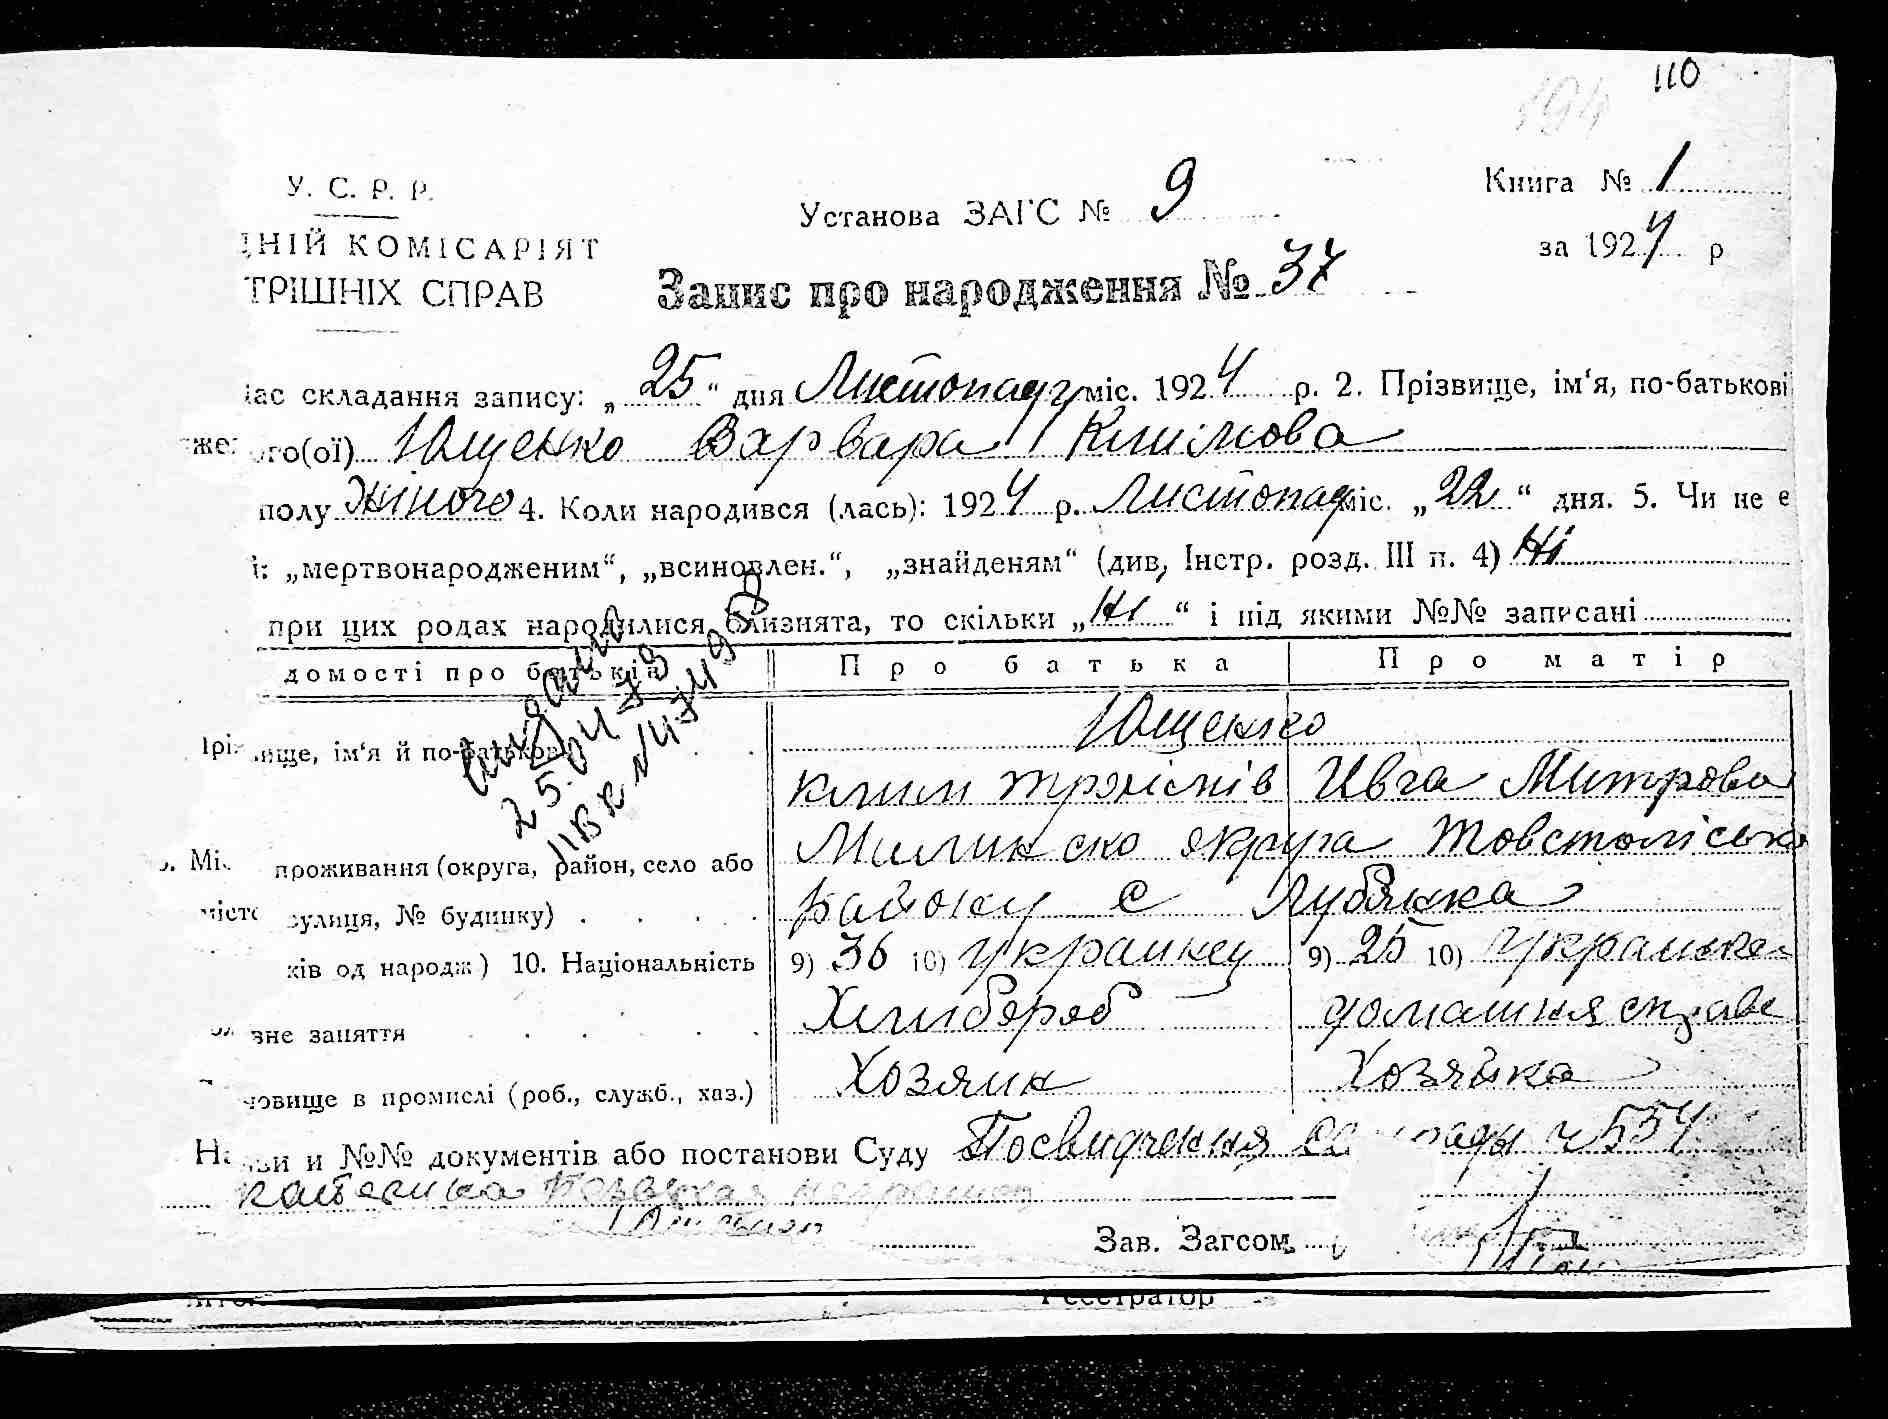 110
194
У. С. Р. Р.
Установа ЗАГС № 9
Книга № 1
ДНІЙ КОМІСАРІЯТ
за 1924 р
ТРІШНІХ СПРАВ
Запис про народження № 37
час складання запису: „25“ дня Листопаду міс. 1924 р. 2. Прізвище, ім‘я, по-батькові
ого(ої) Ющенко Варвара Климова
полу жіночо 4. Коли народився (лась): 1924 р. Листопад міс. „22“ дня. 5. Чи не є
і: „мертвонародженим“, „всиновлен.“, „знайденям“ (див, Інстр. розд. III п. 4) Ні
при цих родах народилися близнята, то скільки „Ні“ і під якими №№ записані
домості про батьків
Про батька
Про матір
Ющенко
Прізвище, ім‘я й по-батькові
25.04.79
Клим Трохимів
Ивга Митрова
проживання (округа, район, село або
округа Товстоліська
місто вулиця, № будинку)
Району с Лубянка
ків од народж) 10. Національність
9) 36 10) Украинец
9) 25 10) Украинка
вне заняття
Хлибороб
домашня справа
новище в промислі (роб., служб., хаз.)
Хозяин
Хозяйка
Назви и №№ документів або постанови Суду Посвидчення ради ч 534
Зав. Загсом
Реєстратор